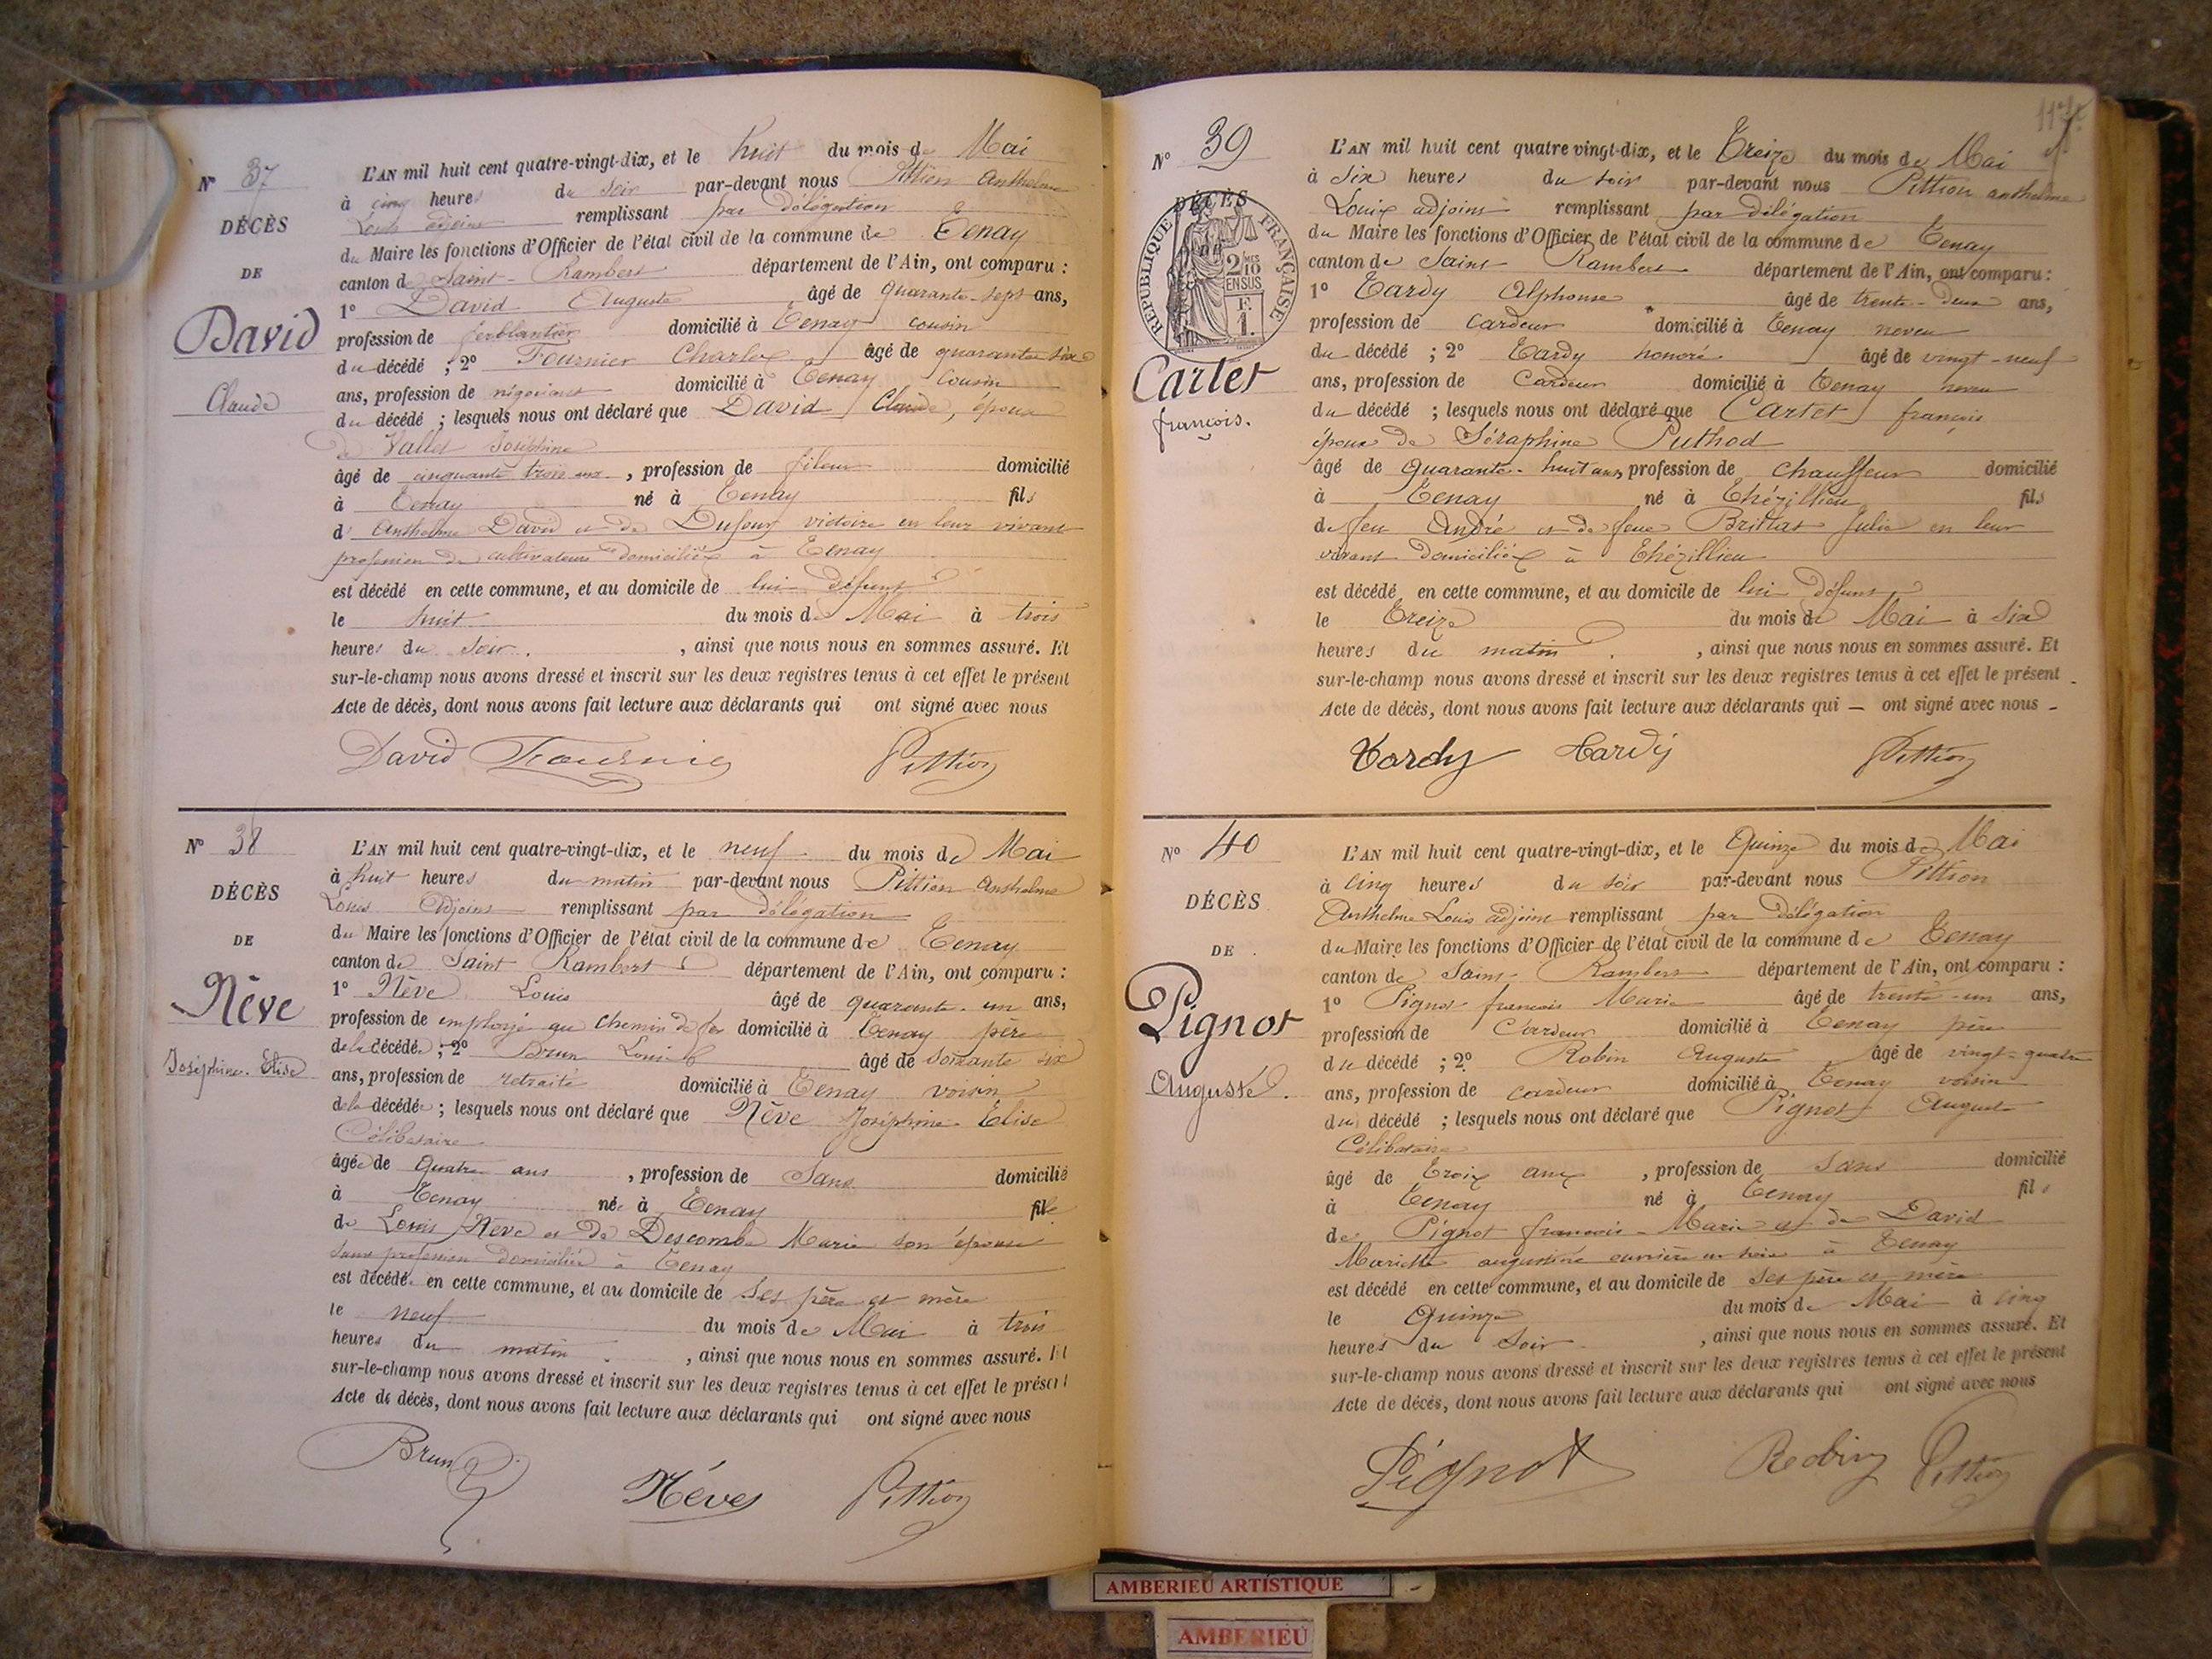 N° 37
DÉCÈS
DE
David
Claude
L'AN mil huit cent quatre-vingt-dix, et le huit du mois de Mai
à cinq heures du soir par-devant nous Pittion Anthelme
Louis adjoint remplissant par délégation
du Maire les fonctions d'Officier de l'état civil de la commune de Tenay
canton de Saint-Rambert département de l'Ain, ont comparu :
1° David Auguste âgé de quarante-sept ans,
profession de ferblantier domicilié à Tenay cousin
du décédé ; 2° Fournier Charles âgé de quarante six
ans, profession de négociant domicilié à Tenay Cousin
du décédé ; lesquels nous ont déclaré que David Claude, époux
de Vallet Joséphine
âgé de cinquante trois ans, profession de fileur domicilié
à Tenay né à Tenay fils
d' Anthelme David et de Dufour victoire en leur vivant
profession de cultivateurs domiciliés à Tenay
est décédé en cette commune, et au domicile de lui défunt
le huit du mois de Mai à trois
heures du Soir. , ainsi que nous nous en sommes assuré. Et
sur-le-champ nous avons dressé et inscrit sur les deux registres tenus à cet effet le présent
Acte de décès, dont nous avons fait lecture aux déclarants qui ont signé avec nous
David Fournier Pittion
N° 38
DÉCÈS
DE
Nêve
Joséphine. Elise
L'AN mil huit cent quatre-vingt-dix, et le neuf du mois de Mai
à huit heures du matin par-devant nous Pittion Anthelme
Louis Adjoint remplissant par délégation
du Maire les fonctions d'Officier de l'état civil de la commune de Tenay
canton de Saint Rambert département de l'Ain, ont comparu :
1° Nêve Louis âgé de quarante-un ans,
profession de employé au chemin de fer domicilié à Tenay père
de la décédée ; 2° Brun Louis âgé de soixante six
ans, profession de retraité domicilié à Tenay voisin
de la décédée ; lesquels nous ont déclaré que Nêve Joséphine Elise
Célibataire
âgée de quatre ans , profession de Sans domicilié
à Tenay née à Tenay fille
de Louis Neve et de Descombe Marie son épouse
sans profession domiciliés à Tenay
est décédée en cette commune, et au domicile de Ses père et mère
le neuf du mois de Mai à trois
heures du matin. , ainsi que nous nous en sommes assuré. Et
sur-le-champ nous avons dressé et inscrit sur les deux registres tenus à cet effet le présent
Acte de décès, dont nous avons fait lecture aux déclarants qui ont signé avec nous
Brun Néves Pittion
N° 39
DÉCÈS
RÉPUBLIQUE FRANÇAISE
2/10 MES
EN SUS
F.
1.
Cartet
françois.
L'AN mil huit cent quatre vingt-dix, et le Treize du mois de Mai
à Six heures du soir par-devant nous Pittion anthelme
Louis adjoint remplissant par délégation
du Maire les fonctions d'Officier de l'état civil de la commune de Tenay
canton de Saint Rambert département de l'Ain, ont comparu :
1° Tardy Alphonse âgé de trente-deux ans,
profession de cardeur domicilié à Tenay neveu
du décédé ; 2° Tardy honoré âgé de vingt-neuf
ans, profession de Cardeur domicilié à Tenay neveu
du décédé ; lesquels nous ont déclaré que Cartet françois
époux de Séraphine Puthod
âgé de quarante-huit ans, profession de chauffeur domicilié
à Tenay né à Thézillieu fils
de feu André et de feue Brittat Julie en leur
vivant domiciliés à Thézillieu
est décédé en cette commune, et au domicile de lui défunt
le Treize du mois de Mai à Six
heures du matin. , ainsi que nous nous en sommes assuré. Et
sur-le-champ nous avons dressé et inscrit sur les deux registres tenus à cet effet le présent
Acte de décès, dont nous avons fait lecture aux déclarants qui — ont signé avec nous
Tardy Tardy Pittion
N° 40
DÉCÈS
DE
Pignot
Auguste.
L'AN mil huit cent quatre-vingt-dix, et le Quinze du mois de Mai
à Cinq heures du soir par-devant nous Pittion
Anthelme Louis adjoint remplissant par délégation
du Maire les fonctions d'Officier de l'état civil de la commune de Tenay
canton de Saint-Rambert département de l'Ain, ont comparu :
1° Pignot françois Marie âgé de trente-un ans,
profession de Cardeur domicilié à Tenay père
du décédé ; 2° Robin Auguste âgé de vingt-quatre
ans, profession de cardeur domicilié à Tenay voisin
du décédé ; lesquels nous ont déclaré que Pignot Auguste
Célibataire
âgé de Trois ans , profession de Sans domicilié
à Tenay né à Tenay fils
de Pignot françois-Marie et de David
Mariette augustine ouvrière en soie à Tenay
est décédé en cette commune, et au domicile de ses père et mère
le Quinze du mois de Mai à cinq
heures du Soir , ainsi que nous nous en sommes assuré. Et
sur-le-champ nous avons dressé et inscrit sur les deux registres tenus à cet effet le présent
Acte de décès, dont nous avons fait lecture aux déclarants qui ont signé avec nous
Pignot Robin Pittion
AMBERIEU ARTISTIQUE
AMBERIEU